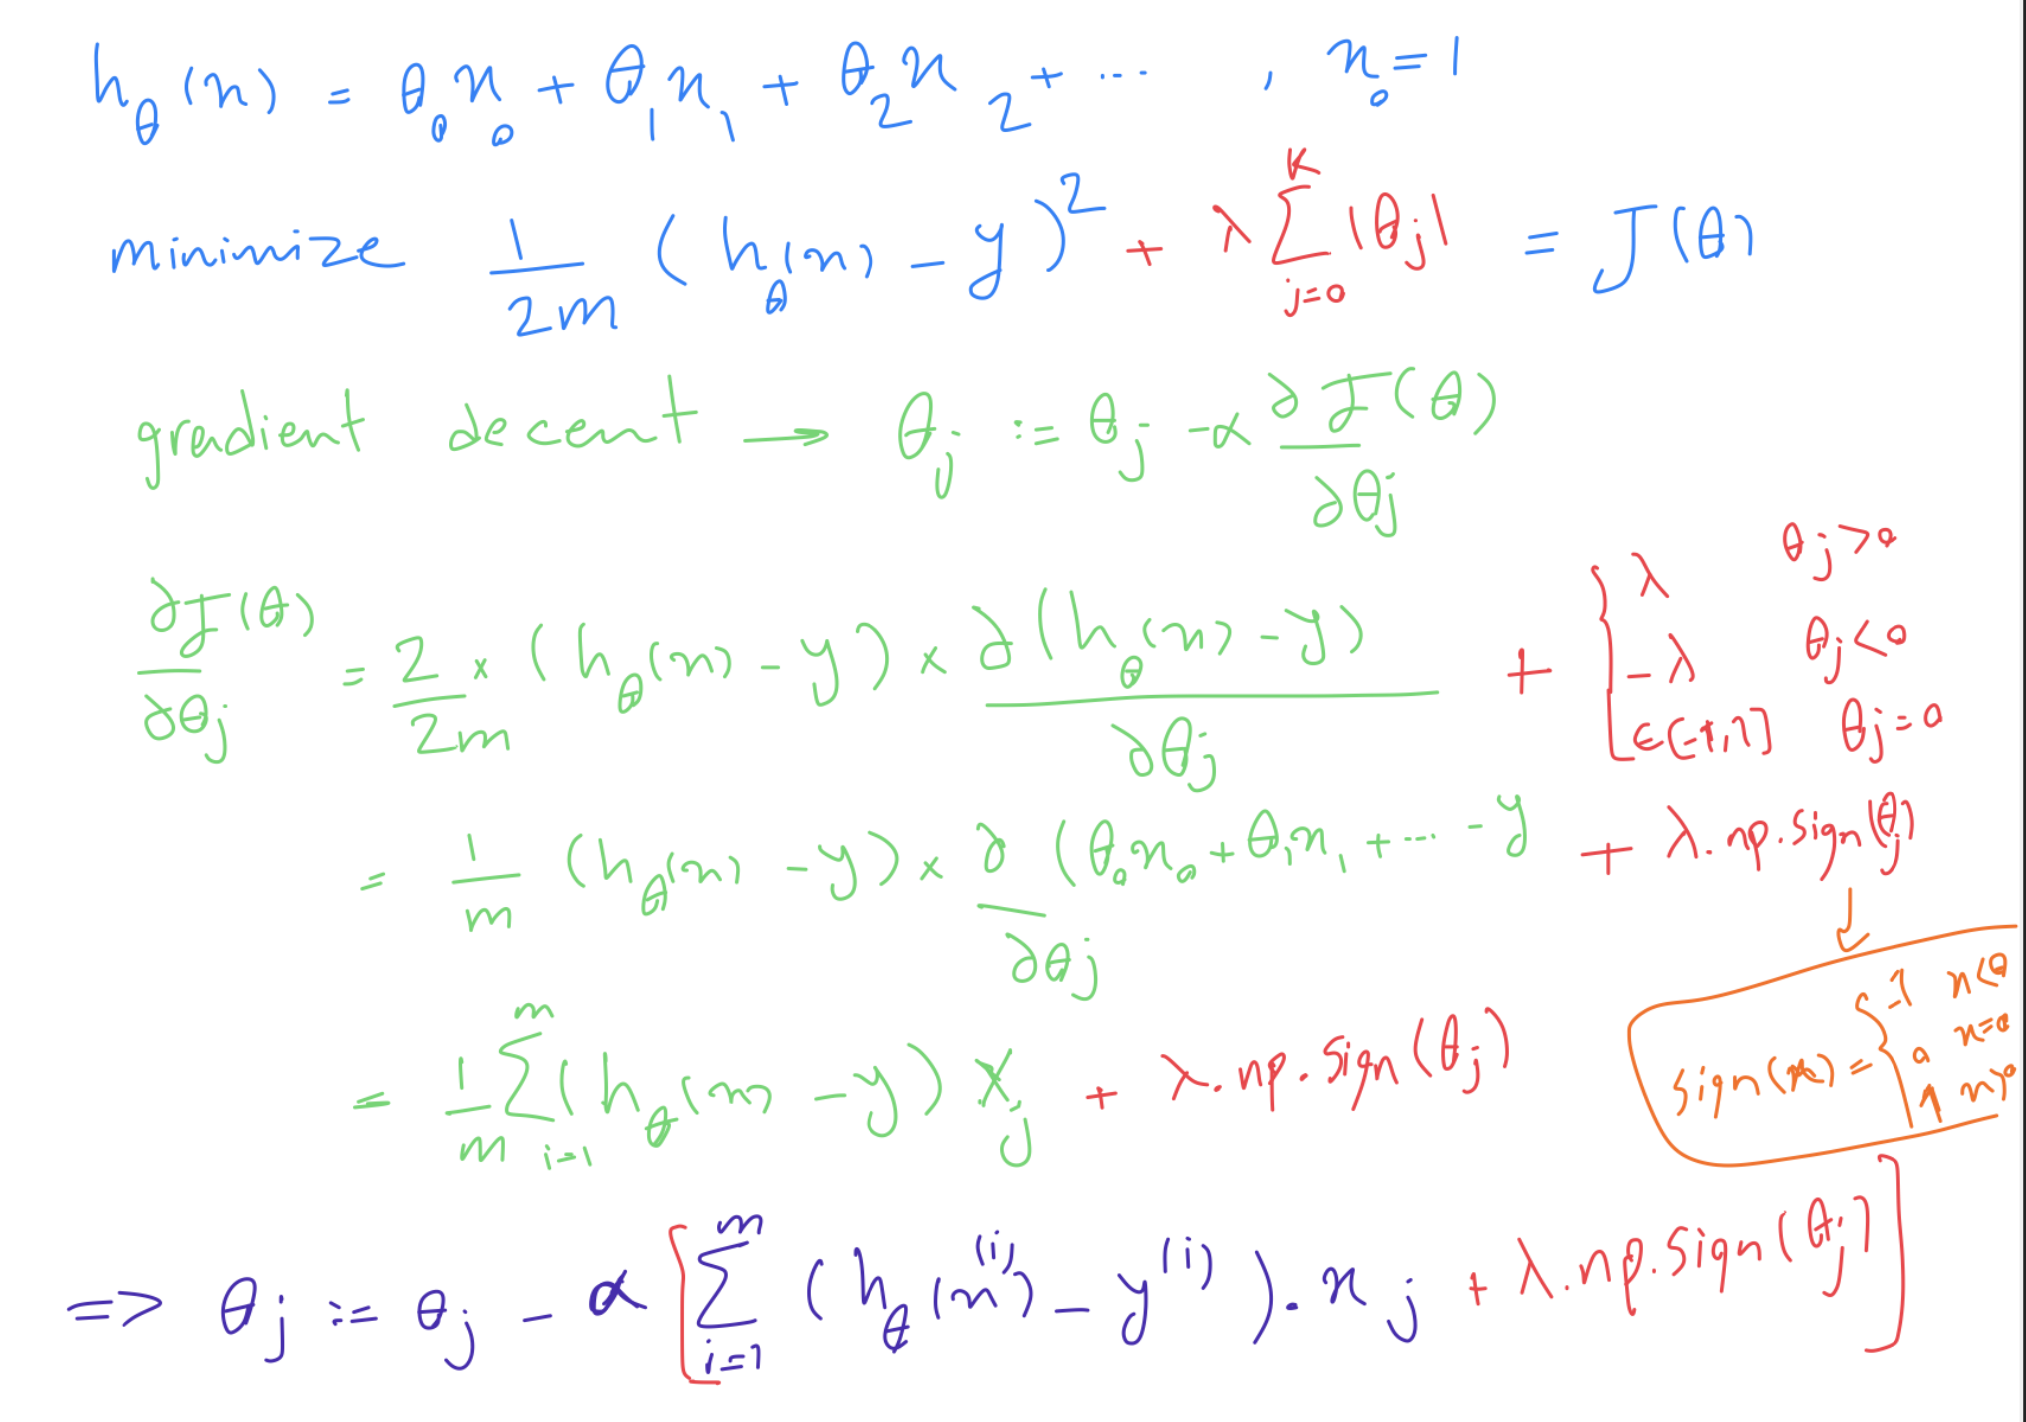 h_θ(x) = θ_0 x_0 + θ_1 x_1 + θ_2 x_2 + ... , x_0 = 1
minimize 1/2m (h_θ(x) - y)^2 + λ Σ_{j=0}^{K} |θ_j| = J(θ)
gradient decent → θ_j := θ_j - α ∂J(θ)/∂θ_j
∂J(θ)/∂θ_j = 2/2m × (h_θ(x) - y) × ∂(h_θ(x) - y)/∂θ_j + { λ θ_j > 0
-λ θ_j < 0
∈ [-λ, λ] θ_j = 0
= 1/m (h_θ(x) - y) × ∂/∂θ_j (θ_0 x_0 + θ_1 x_1 + ... - y + λ.np.sign(θ_j)
sign(x) = { -1 x < 0
0 x = 0
1 x > 0
= 1/m Σ_{i=1}^{m} (h_θ(x) - y) x_j + λ.np.sign(θ_j)
=> θ_j := θ_j - α [Σ_{i=1}^{m} (h_θ(x^(i)) - y^(i)).x_j + λ.np.sign(θ_j)]